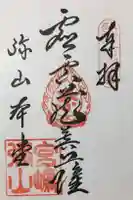 奉拝
虚空蔵菩薩
弥山本堂
宮嶋
弥山